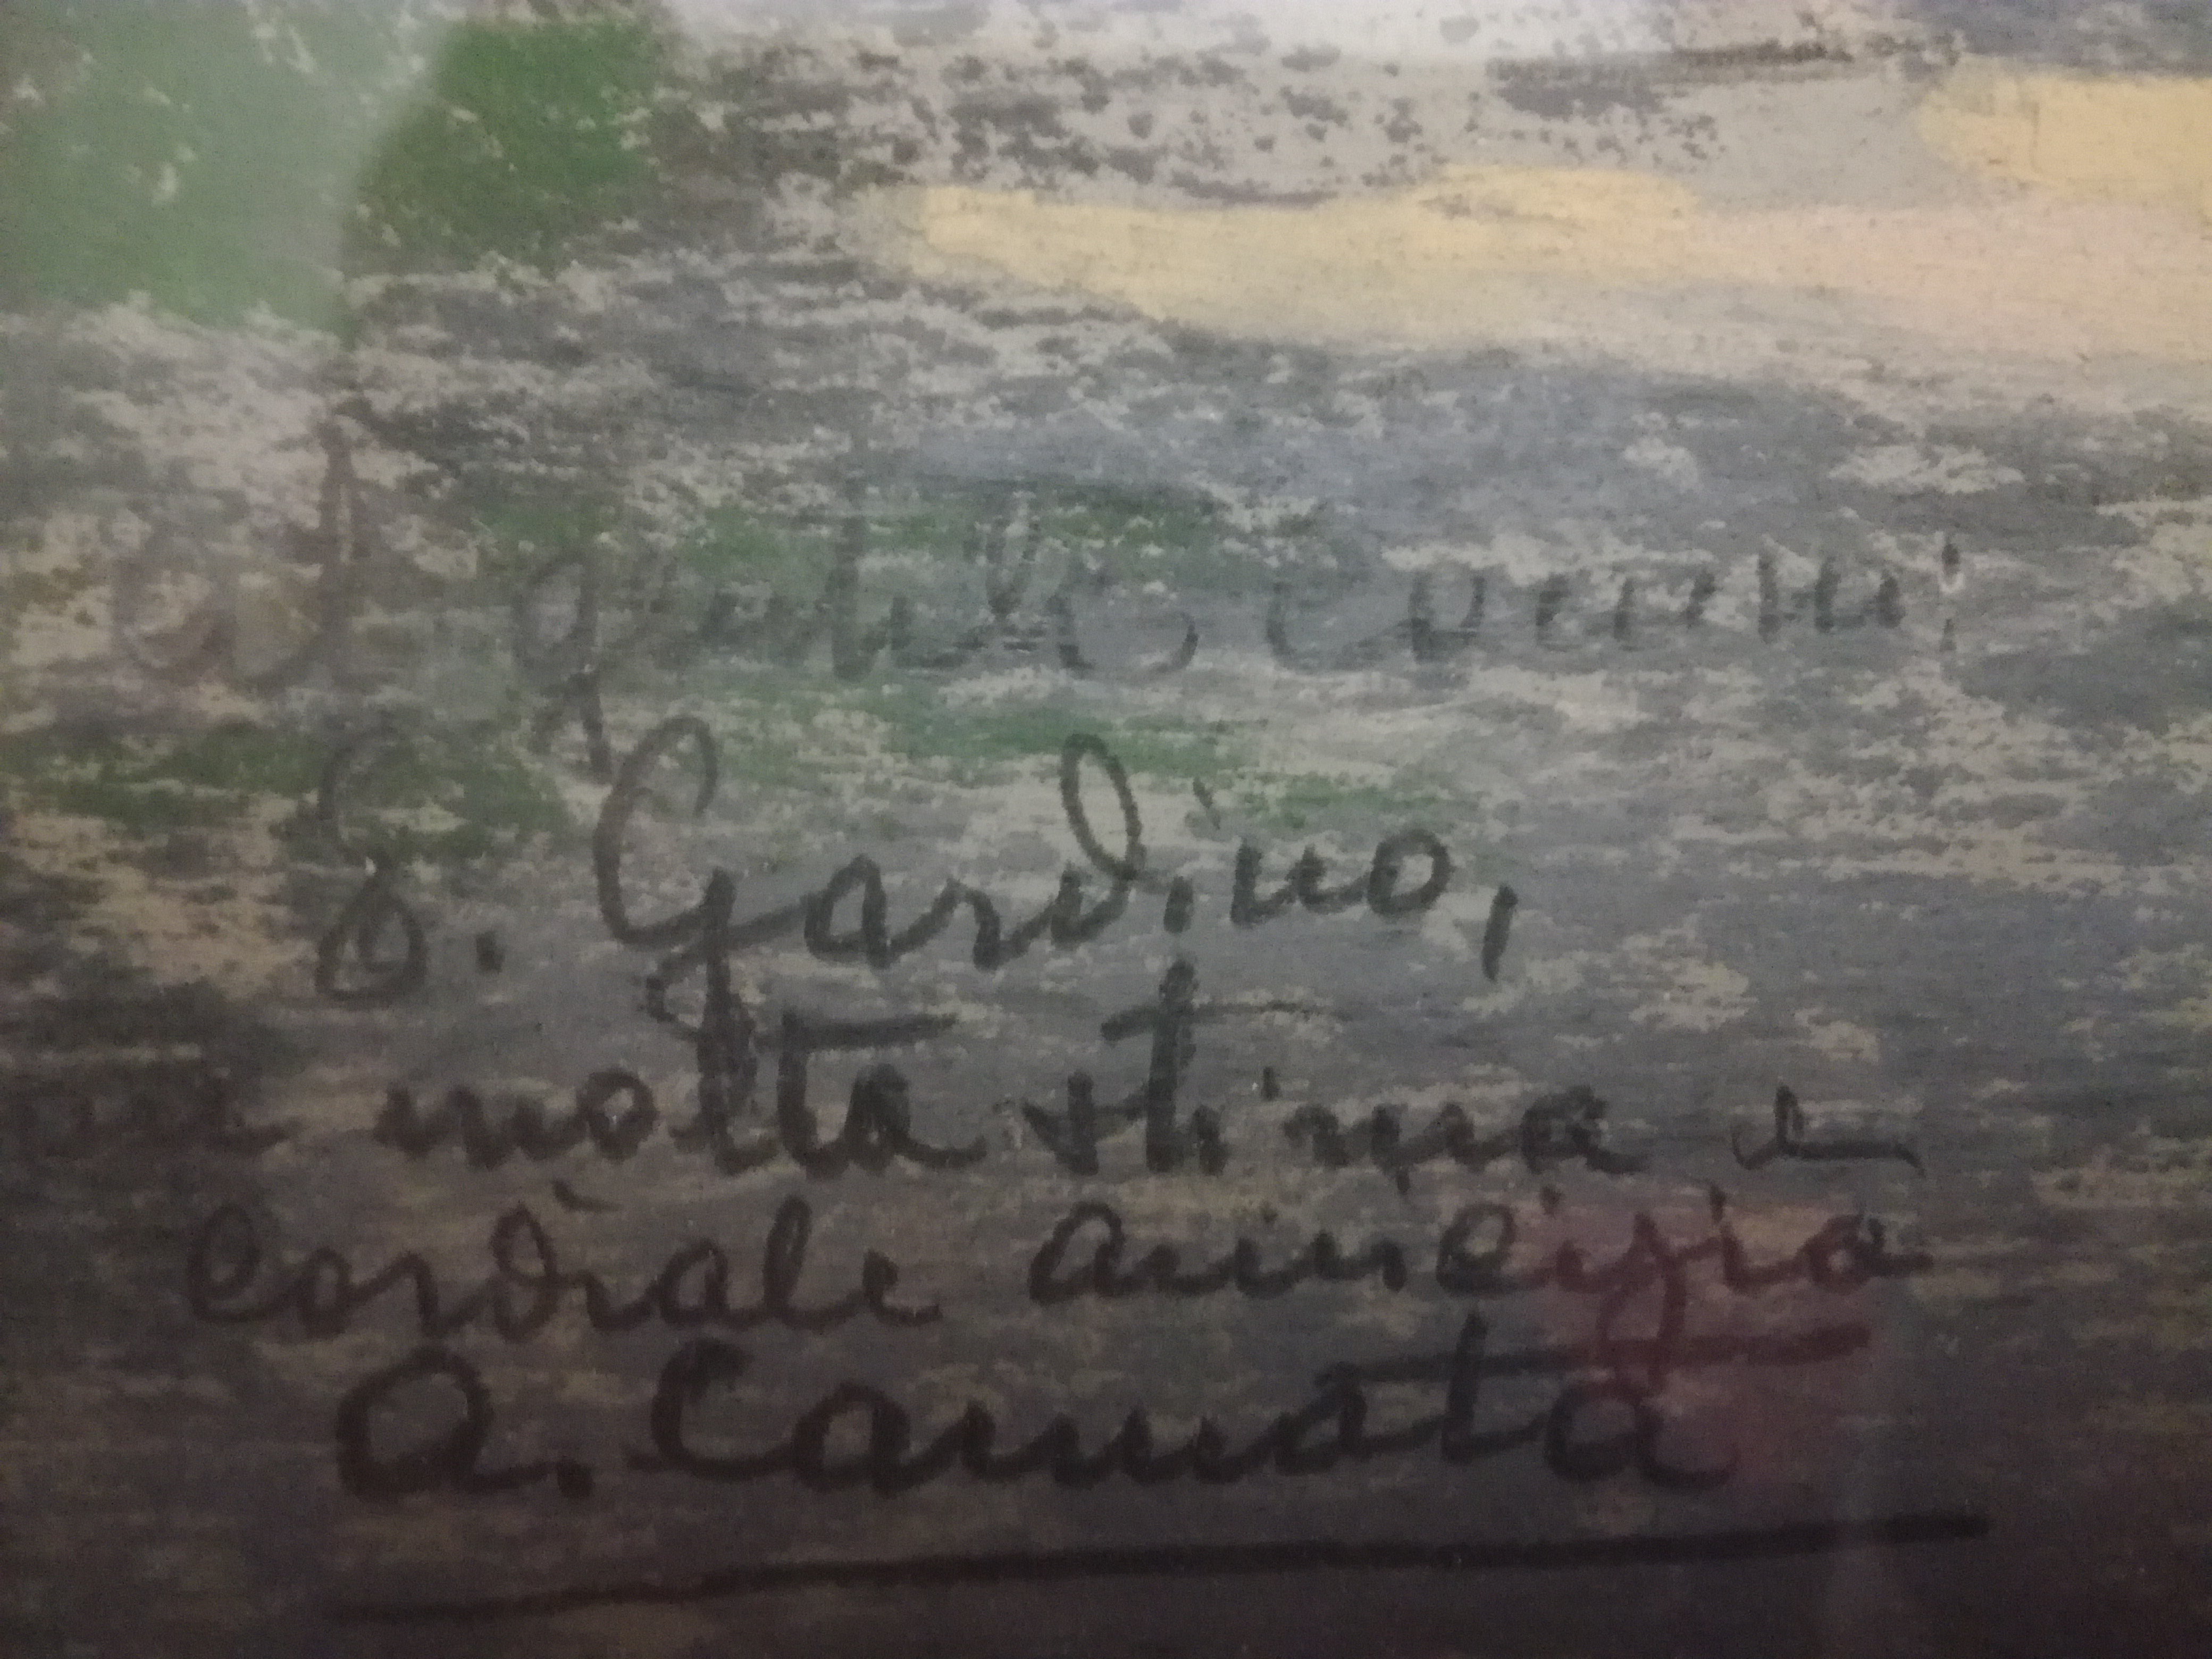 al gentile Comm.
G. Gardino,
con molta stima e
cordiale amicizia
A. Cannata